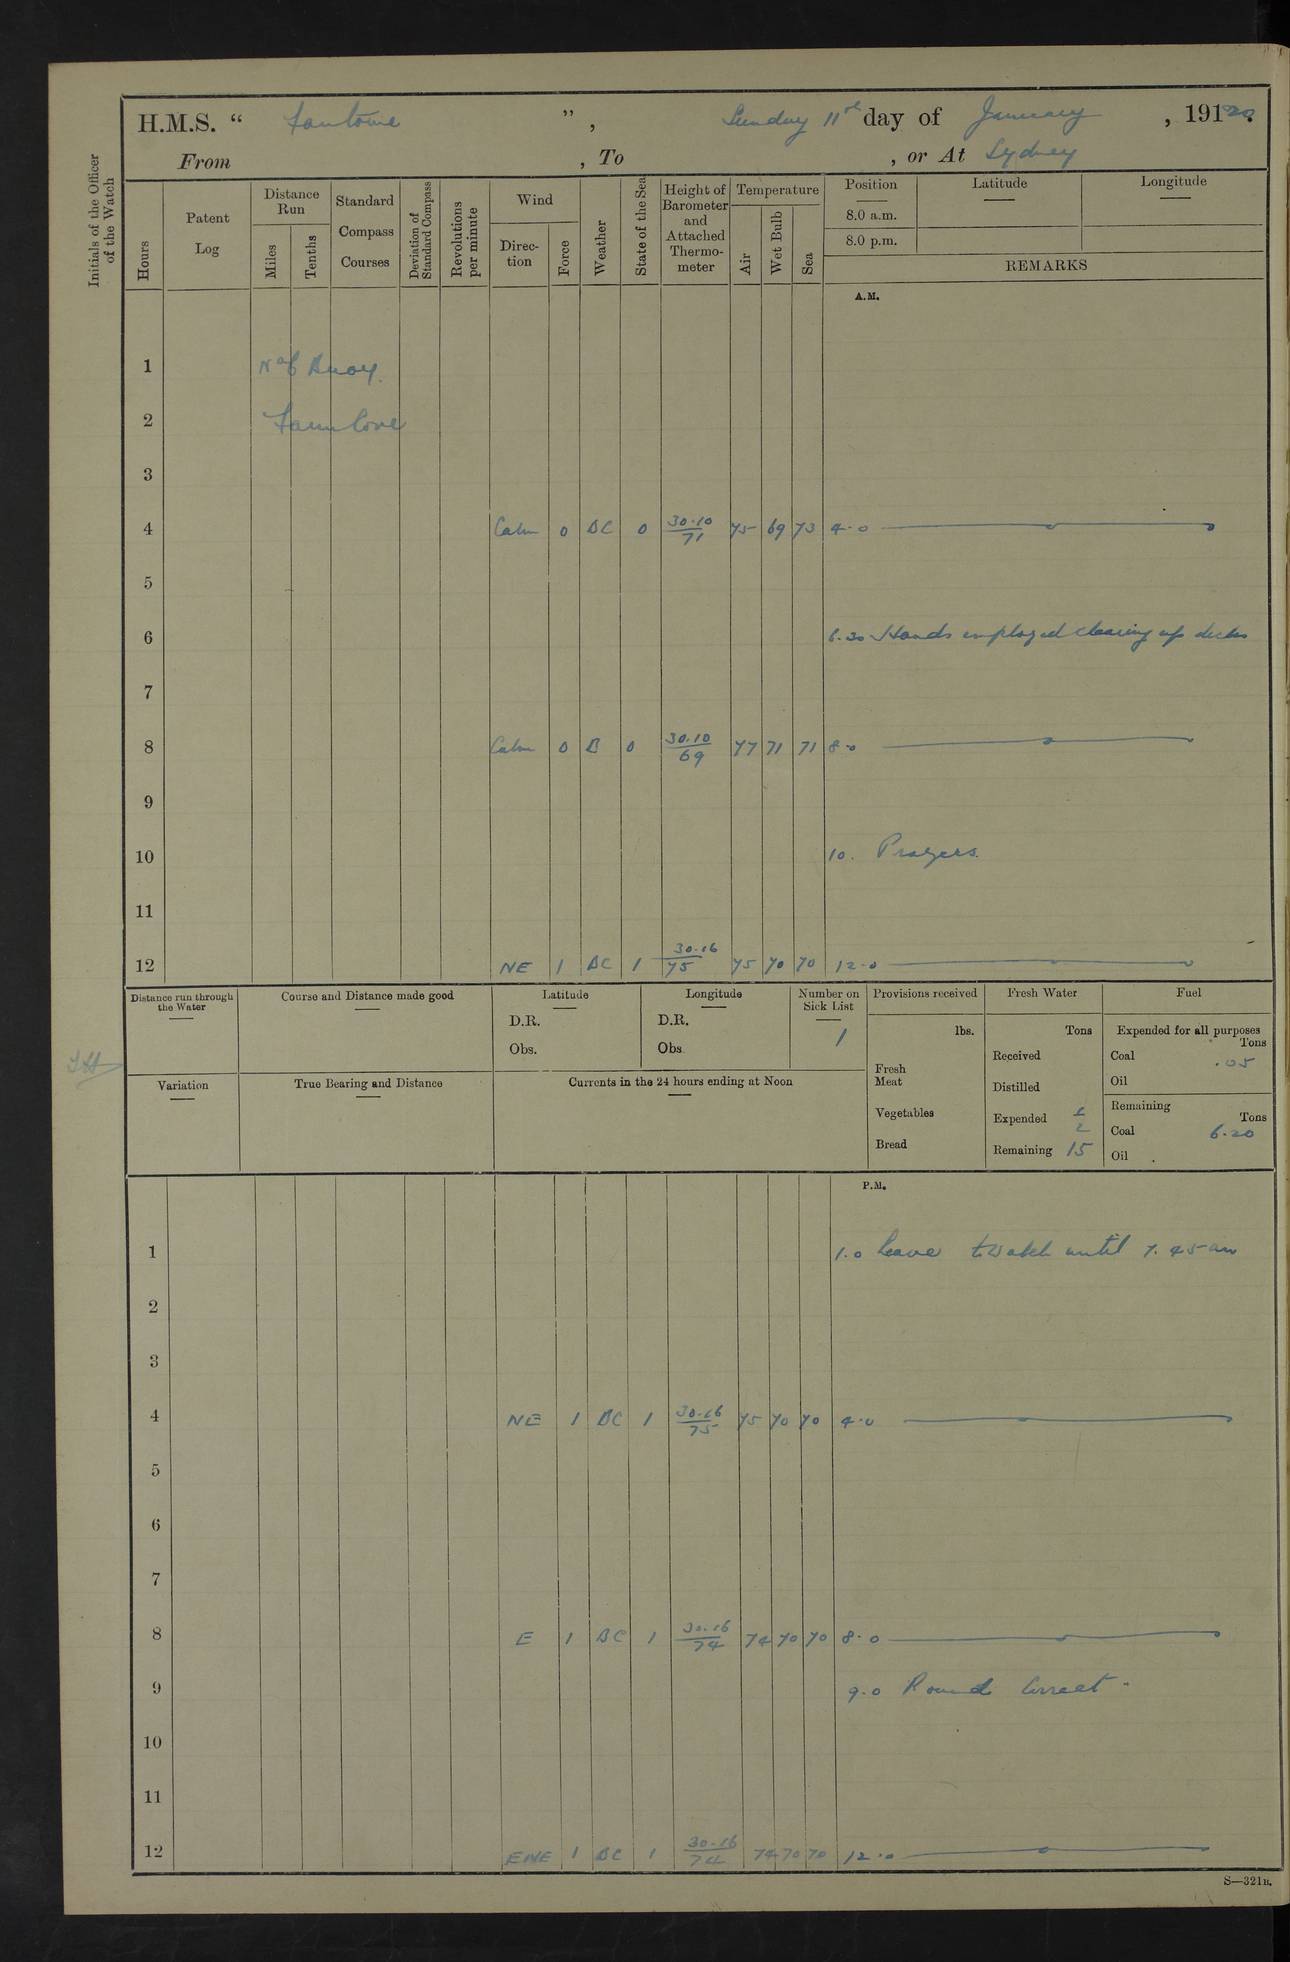 H.M.S. “ Fantome ”, Sunday 11th day of January, 1920.
From , To , or At Sydney
Initials of the Officer of the Watch
Hours
Patent Log
Distance Run
Miles
Tenths
Standard Compass Courses
Deviation of Standard Compass
Revolutions per minute
Wind
Direc-tion
Force
Weather
State of the Sea
Height of Barometer and Attached Thermo-meter
Temperature
Air
Wet Bulb
Sea
Position Latitude Longitude
8.0 a.m.
8.0 p.m.
REMARKS
A.M.
1 No 6 Buoy.
2 Farm Cove
3
4 Calm 0 BC 0 30.10/71 75 69 73 4.0
5
6 6.30 Hands employed clearing up decks
7
8 Calm 0 B 0 30.10/69 77 71 71 8.0
9
10 10. Prayers.
11
12 NE 1 BC 1 30.16/75 75 70 70 12.0
Distance run through the Water
Course and Distance made good
Latitude
D.R.
Obs.
Longitude
D.R.
Obs.
Number on Sick List
1
Provisions received
lbs.
Fresh Meat
Vegetables
Bread
Fresh Water
Tons
Received
Distilled
Expended 1/2
Remaining 15
Fuel
Expended for all purposes
Tons
Coal .05
Oil
Remaining
Tons
Coal 6.20
Oil
Variation
True Bearing and Distance
Currents in the 24 hours ending at Noon
P.M.
1 1.0 Leave to watch until 7.45 am
2
3
4 NE 1 BC 1 30.16/75 75 70 70 4.0
5
6
7
8 E 1 BC 1 30.16/74 74 70 70 8.0
9 9.0 Rounds Correct.
10
11
12 ENE 1 BC 1 30.16/74 74 70 70 12.0
S—321B.